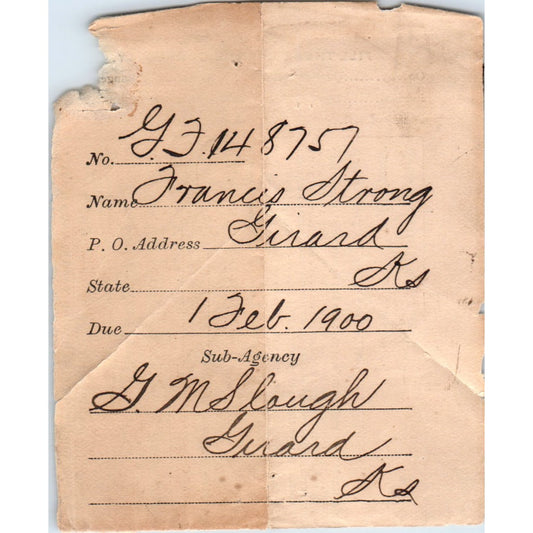 No. G.F. 148757
Name Francis Strong
P. O. Address Girard
State Ks
Due 1 Feb. 1900
Sub-Agency
G. M Slough
Girard
Ks